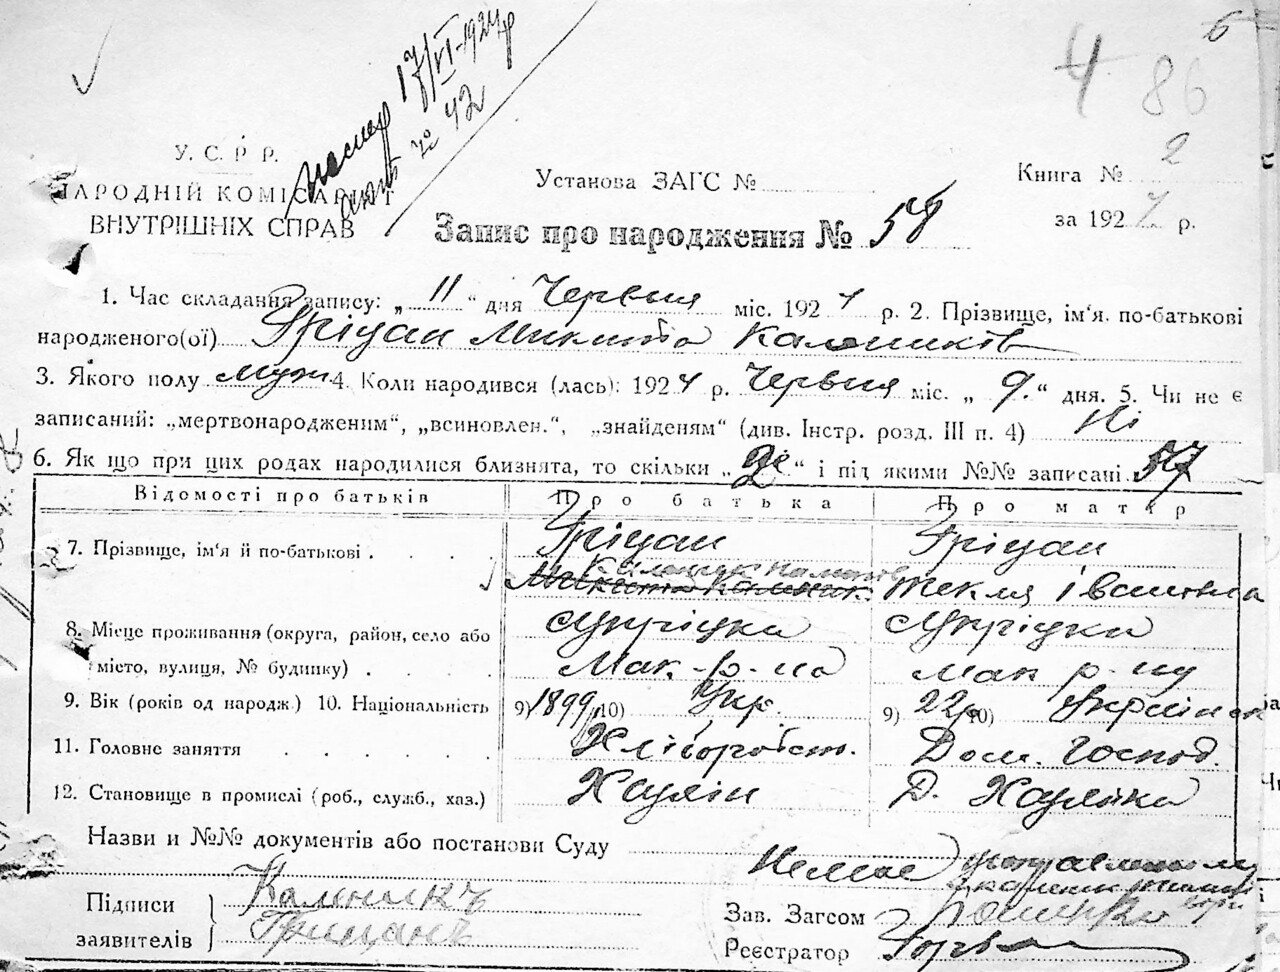 6
4 86
помер 17/VI-1927 р
акт № 42
У. С. Р. Р.
НАРОДНІЙ КОМІСАРІЯТ
ВНУТРІШНІХ СПРАВ
Установа ЗАГС №
Книга № 2
за 1927 р.
Запис про народження № 58
1. Час складання запису: „ 11 “ дня Червня міс. 1927 р. 2. Прізвище, ім'я, по-батькові
народженого(ої) Гріцан Микита Калеників
3. Якого полу муж 4. Коли народився (лась): 1927 р. Червня міс. „ 9. “ дня. 5. Чи не є
записаний: „мертвонародженим“, „всиновлен.“, „знайденям“ (див. Інстр. розд. III п. 4) Ні
6. Як що при цих родах народилися близнята, то скільки „ 2 “ і під якими №№ записані 57
Відомості про батьків Про батька Про матір
7. Прізвище, ім'я й по-батькові . . . . Гріцан Гріцан
Микита Каленик. Текля Івановна
8. Місце проживання (округа, район, село або
місто, вулиця, № будинку) . . Мак. р-на Мак р-ну
9. Вік (років од народж.) 10. Національність 9) 1899 10) Укр. 9) 22р 10) Українка
11. Головне заняття . . . . Хліборобст. Дом. господ.
12. Становище в промислі (роб., служб., хаз.) Хазяїн Д. Хазяйка
Назви и №№ документів або постанови Суду Немає
Підписи
заявителів
Каленикъ
Грицанъ
Зав. Загсом
Реєстратор